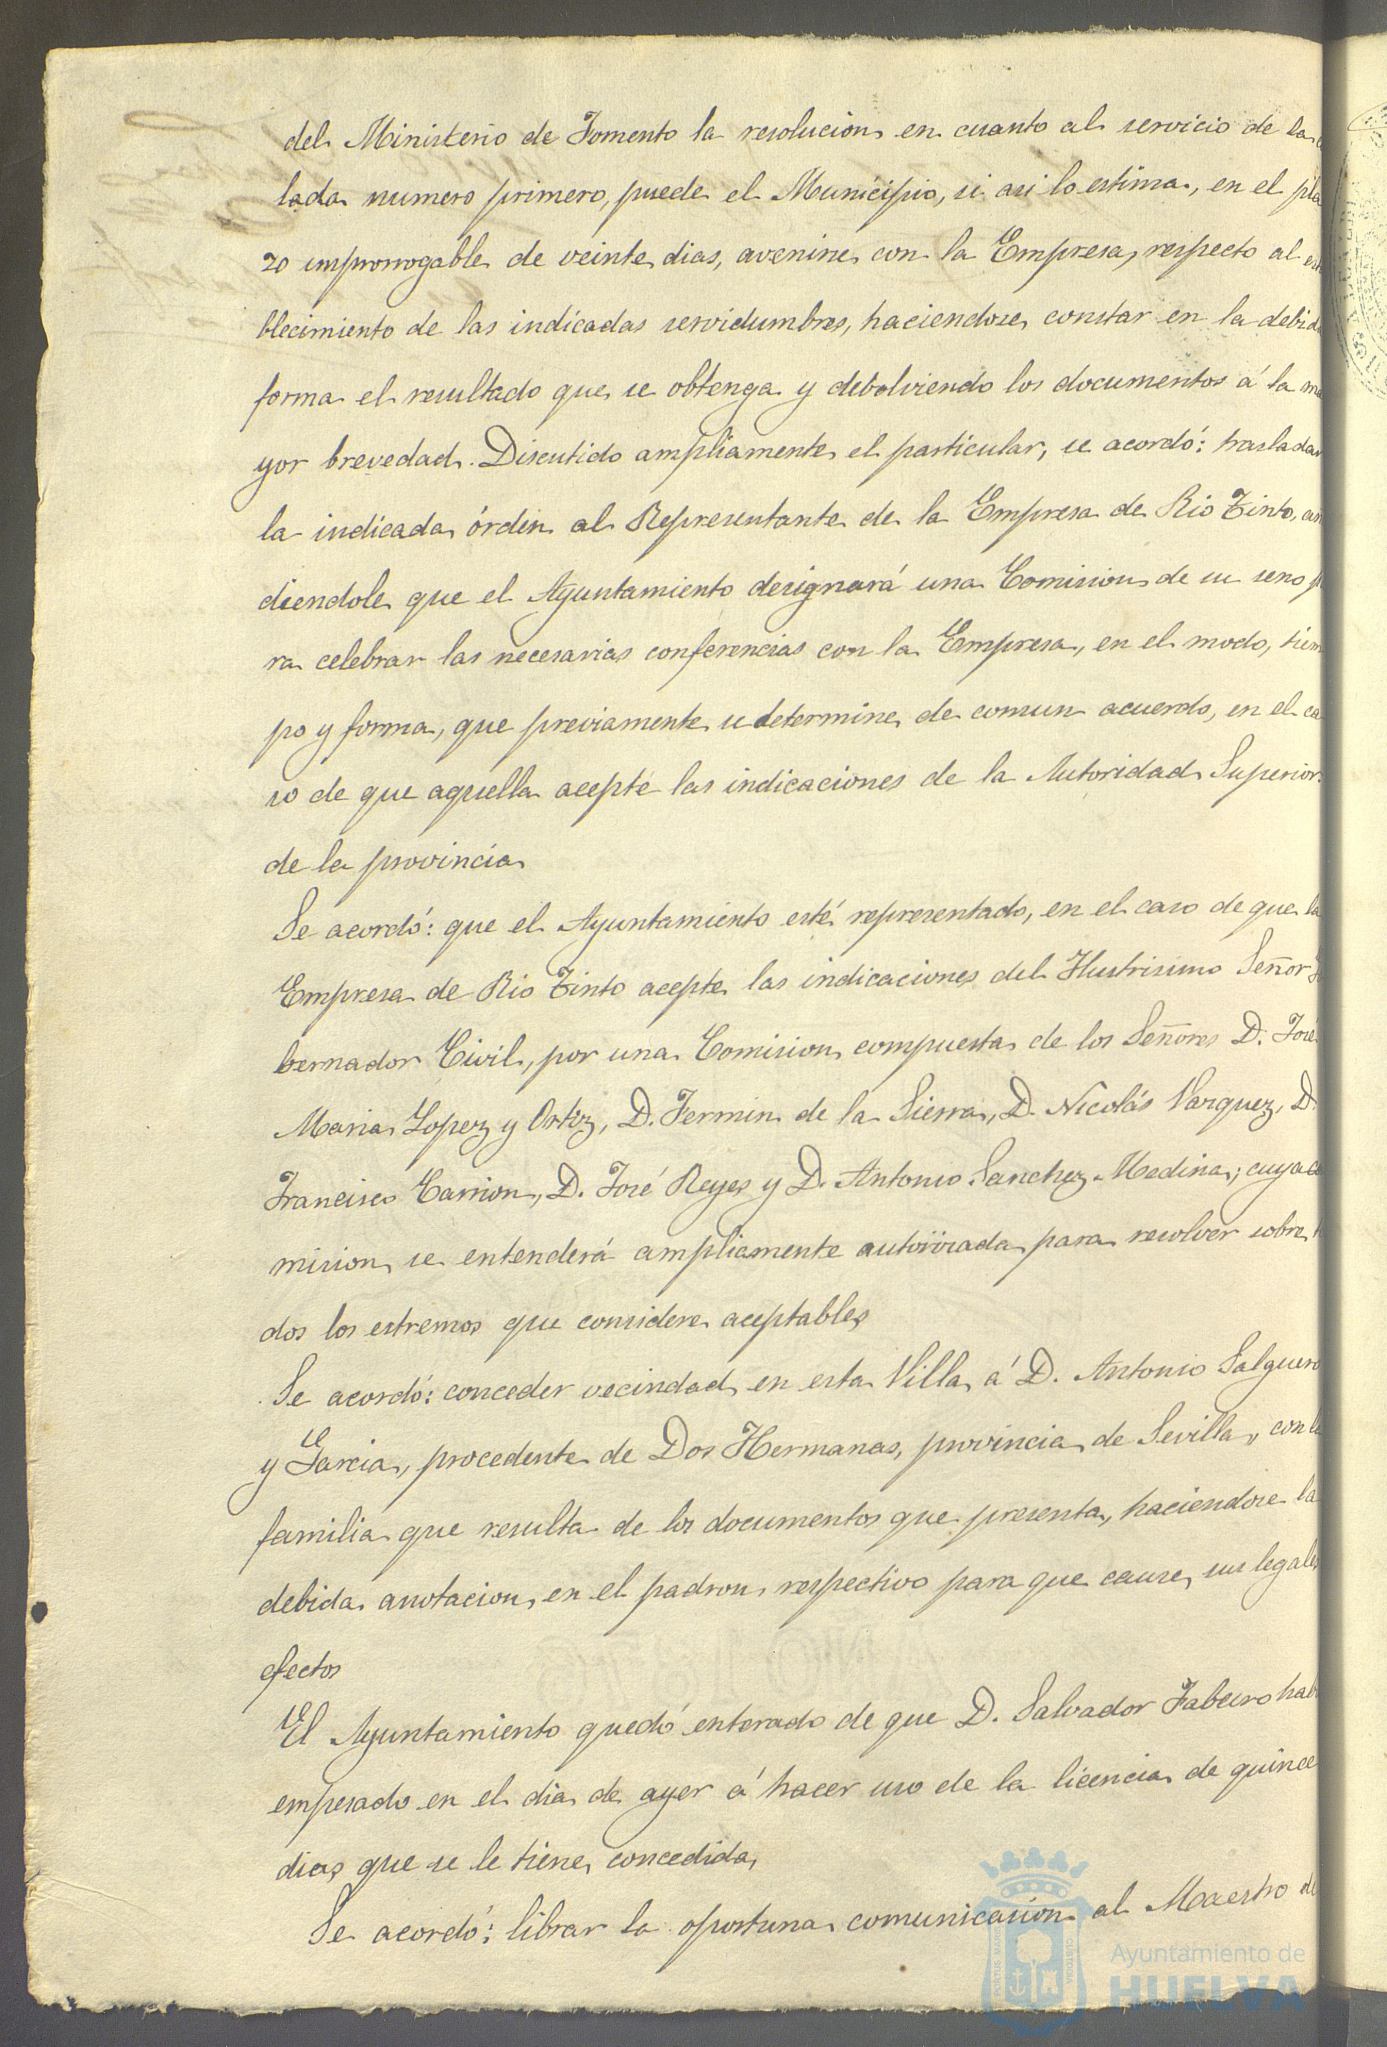 del Ministerio de Fomento la resolucion en cuanto al servicio de la
lada numero primero, puede el Municipio, si asi lo estima, en el pla
zo improrrogable de veinte dias, avenirse con la Empresa, respecto al est
blecimiento de las indicadas servidumbres, haciendose constar en la debida
forma el resultado que se obtenga y debolviendo los documentos á la ma
yor brevedad. Discutido ampliamente el particular, se acordó: trasladar
la indicada órden al Representante de la Empresa de Rio Tinto,
diendole que el Ayuntamiento designará una Comision de su seno pa
ra celebrar las necesarias conferencias con la Empresa, en el modo, tiem
po y forma, que previamente se determine de comun acuerdo, en el ca
so de que aquella acepte las indicaciones de la Autoridad Superior
de la provincia
Se acordó: que el Ayuntamiento esté representado, en el caso de que la
Empresa de Rio Tinto acepte las indicaciones del Ilustrisimo Señor Go
bernador Civil, por una Comision compuesta de los Señores D. José
Maria Lopez y Ortiz, D. Fermin de la Sierra, D. Nicolás Vazquez, D.
Francisco Carrion, D. José Reyes y D. Antonio Sanchez Medina; cuya co
mision se entenderá ampliamente autorizada para resolver sobre to
dos los estremos que considere aceptables
Se acordó: conceder vecindad en esta Villa á D. Antonio Salguero
y Garcia, procedente de Dos Hermanas, provincia de Sevilla, con la
familia que resulta de los documentos que presenta, haciendose la
debida anotacion en el padron respectivo para que cause sus legales
efectos
El Ayuntamiento quedó enterado de que D. Salvador Fabeiro habi
empesado en el dia de ayer á hacer uso de la licencia de quince
dias que se le tiene concedida
Se acordó: librar la oportuna comunicasión al Maestro de
Ayuntamiento de
HUELVA